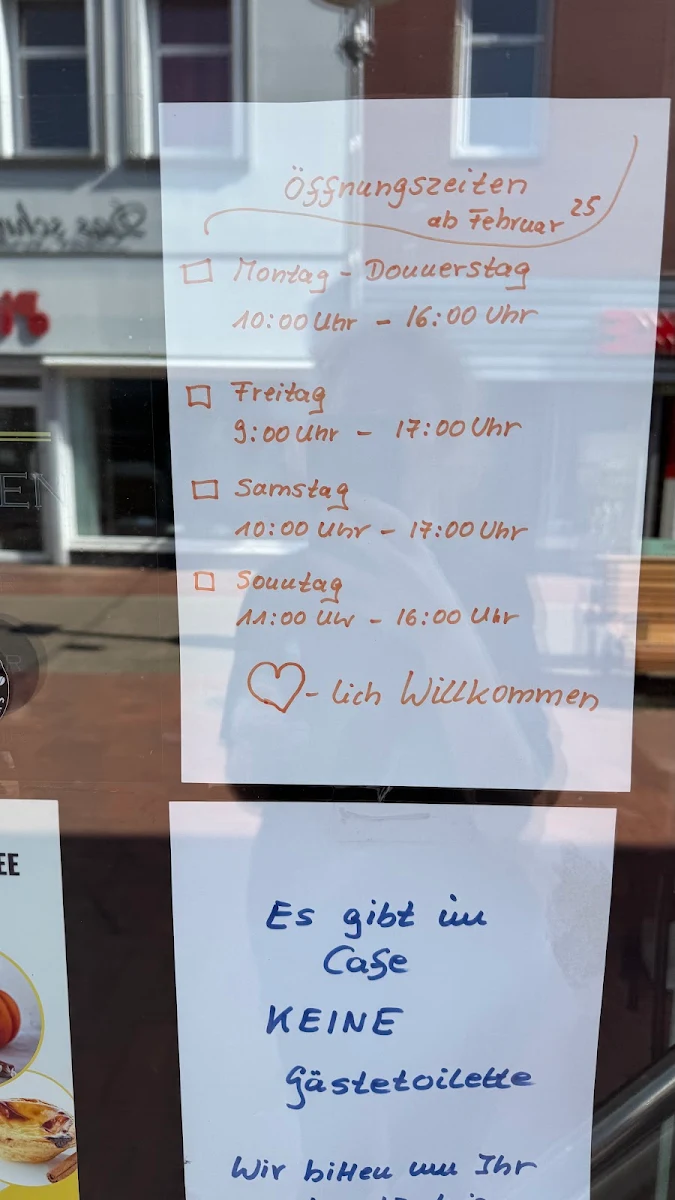 Öffnungszeiten
ab Februar 25
Montag - Donnerstag
10:00 Uhr - 16:00 Uhr
Freitag
9:00 Uhr - 17:00 Uhr
Samstag
10:00 Uhr - 17:00 Uhr
Sonntag
11:00 Uhr - 16:00 Uhr
♡-lich Willkommen
Es gibt im
Cafe
KEINE
Gästetoilette
Wir bitten um Ihr
EE
EN